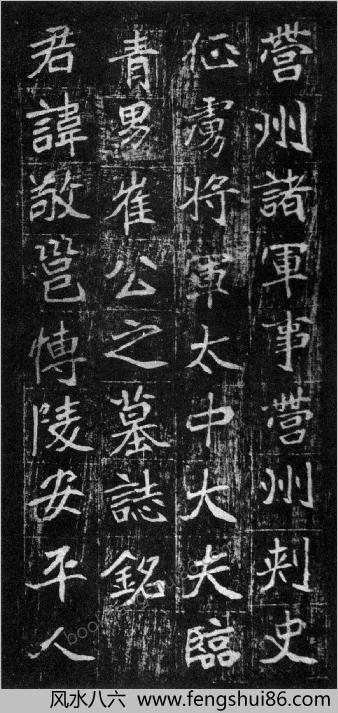 營州諸軍事營州刾史
征虜將軍太中大夫臨
青男崔公之墓誌銘
君諱敬邕博陵安平人
风水八六 www.fengshui86.com